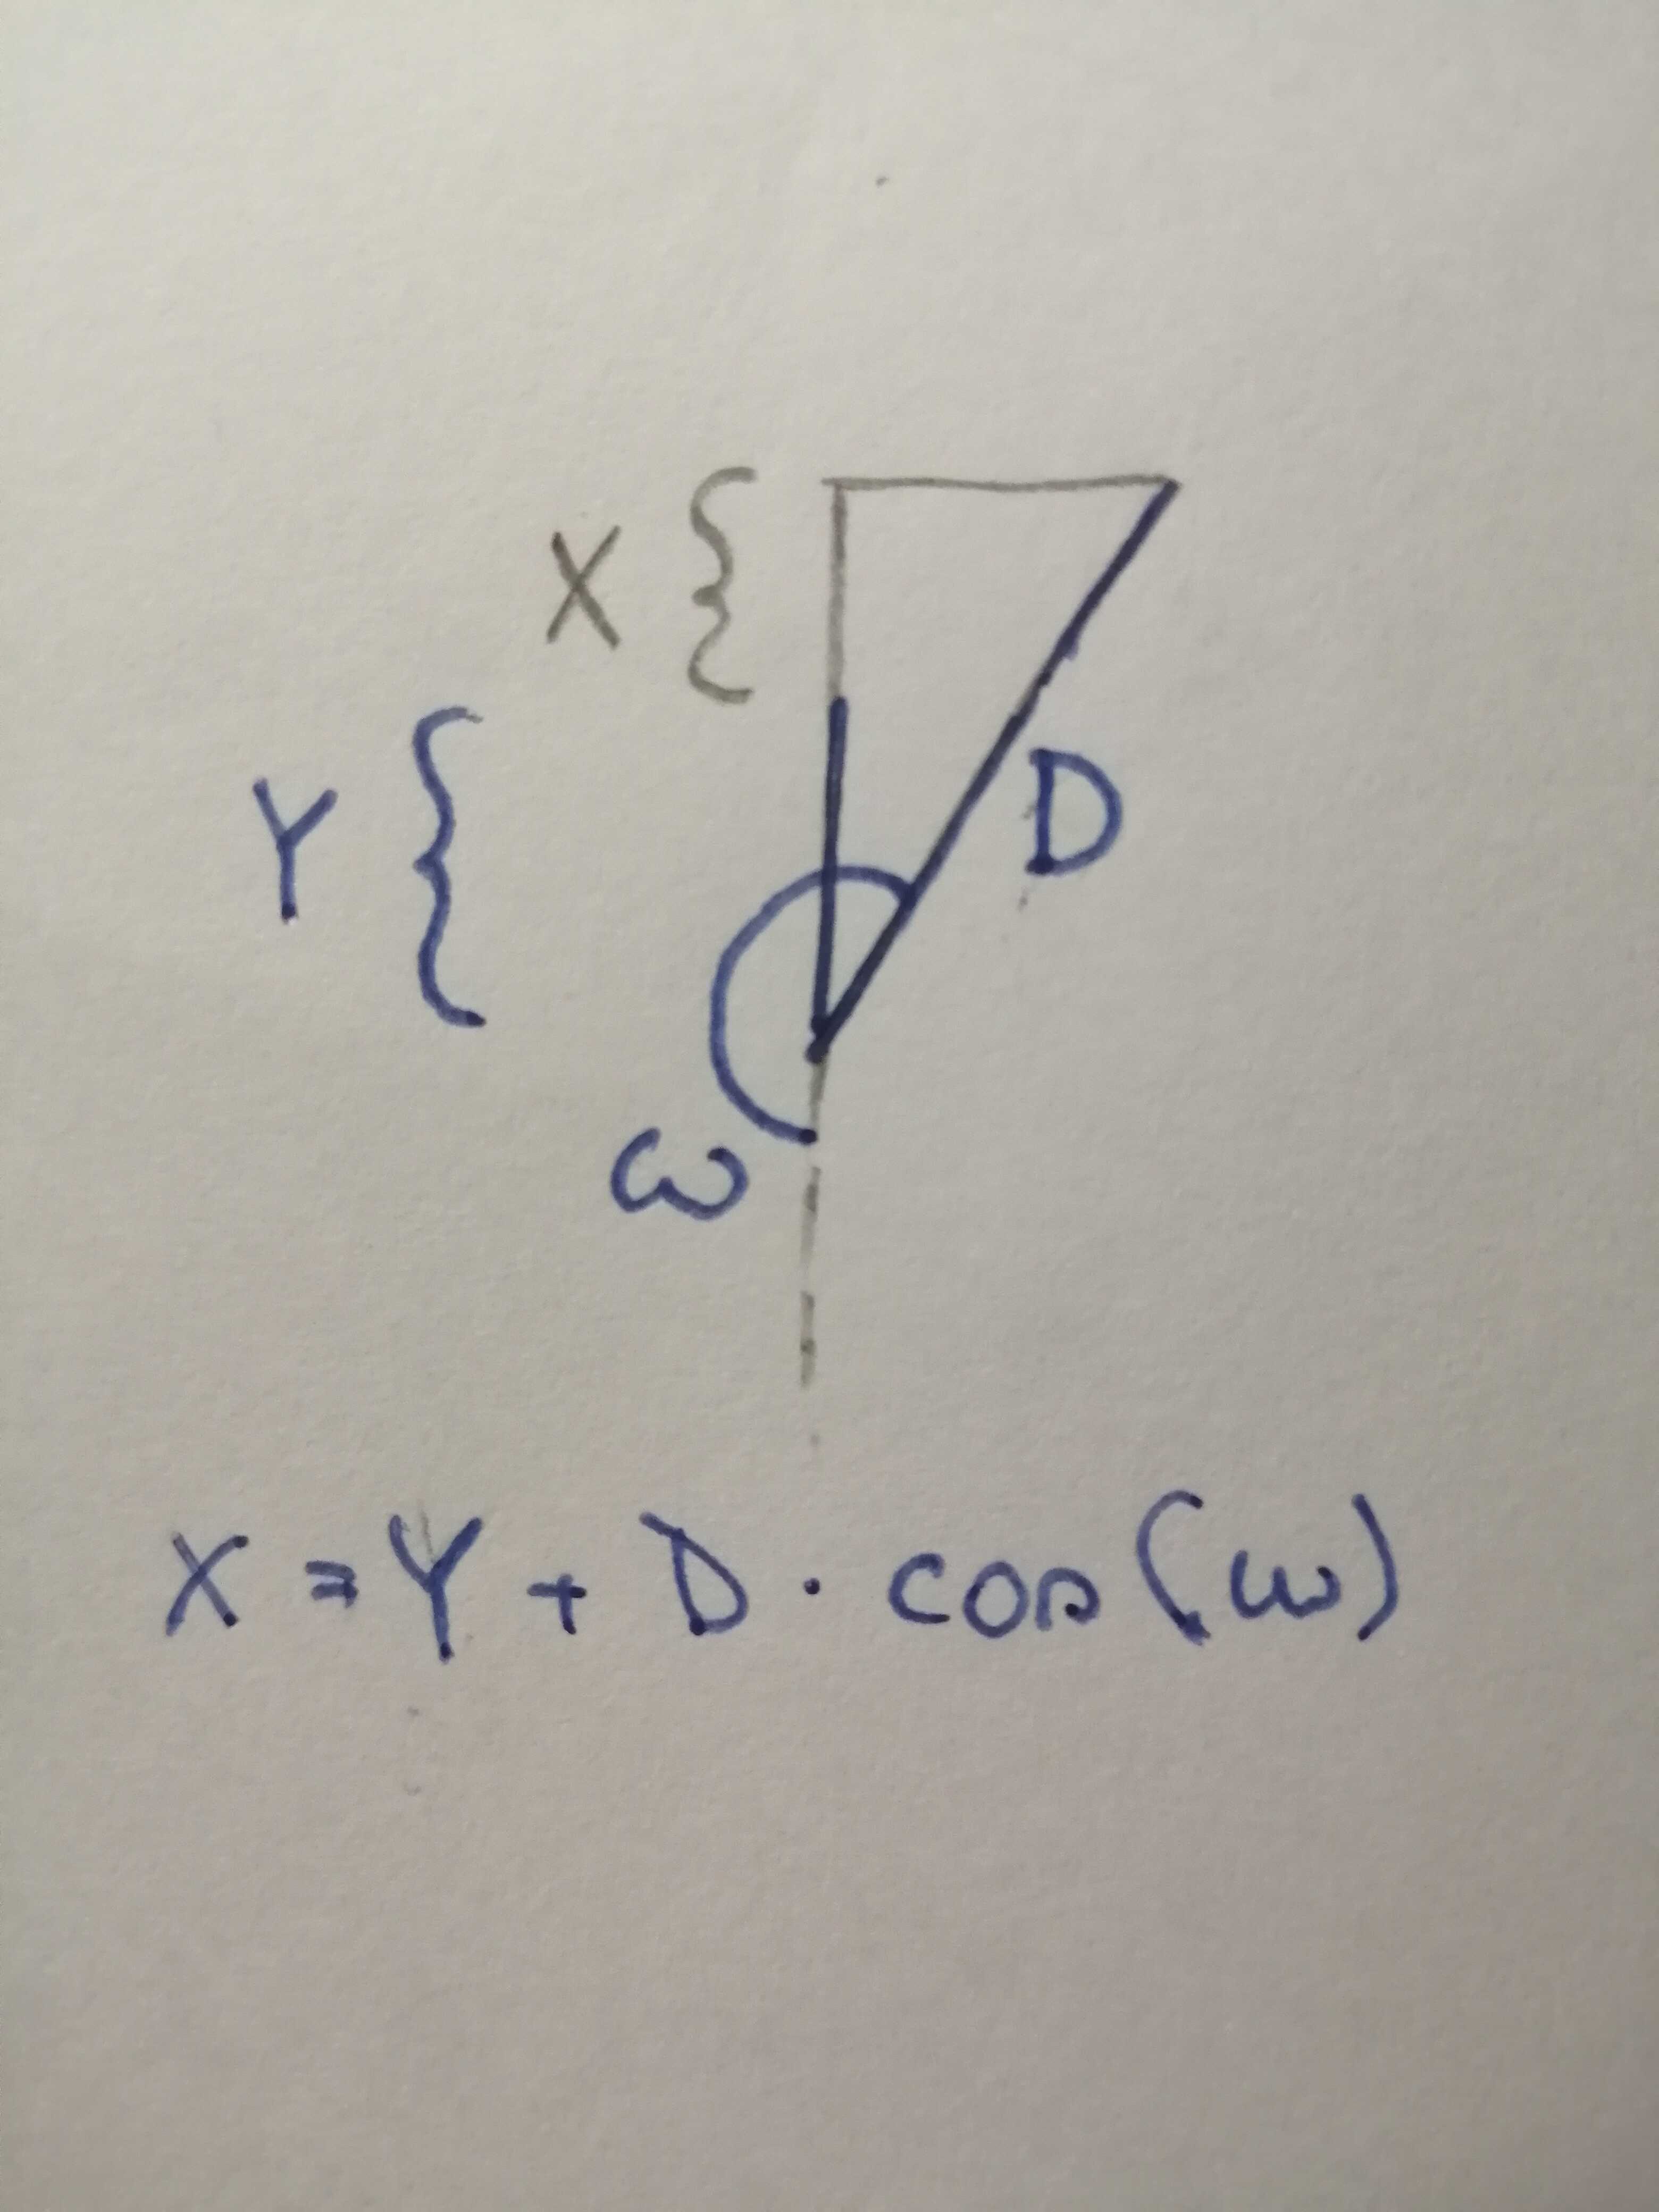 X {
Y {
D
ω
X = Y + D · cos(ω)